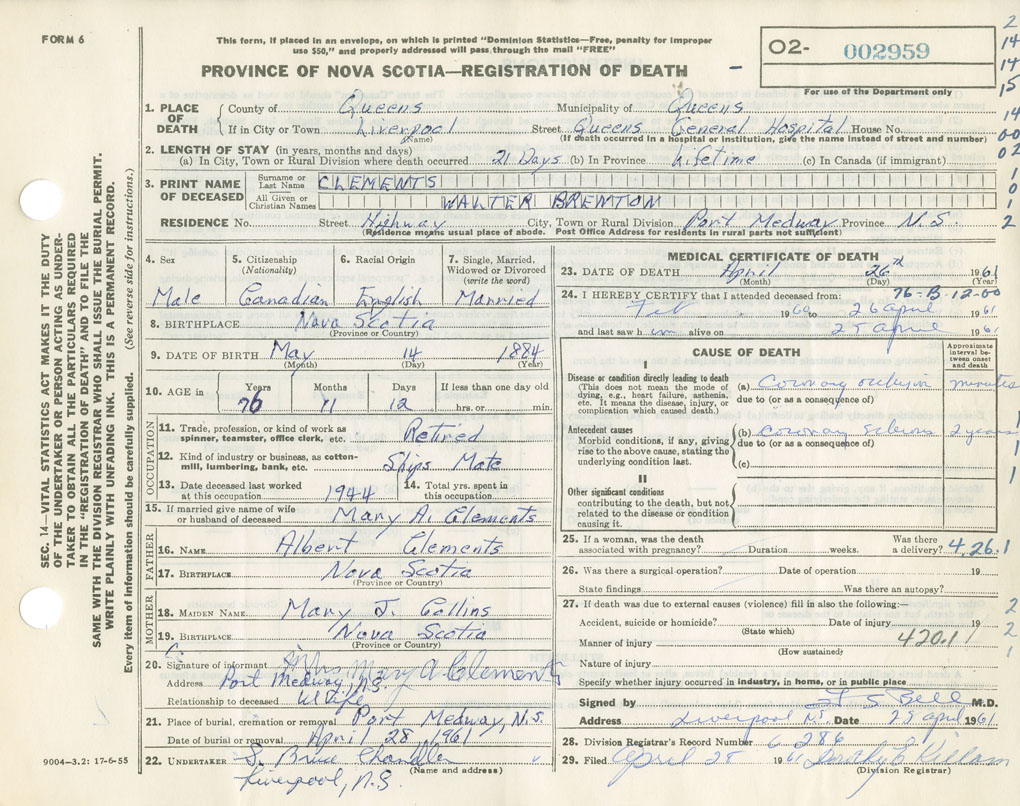 FORM 6
This form, if placed in an envelope, on which is printed "Dominion Statistics—Free, penalty for improper
use $50," and properly addressed will pass through the mail "FREE"
PROVINCE OF NOVA SCOTIA—REGISTRATION OF DEATH
O2- 002959
For use of the Department only
2
14
14
15
14
00
02
1
0
1
2
SEC. 14—VITAL STATISTICS ACT MAKES IT THE DUTY
OF THE UNDERTAKER OR PERSON ACTING AS UNDER-
TAKER TO OBTAIN ALL THE PARTICULARS REQUIRED
IN THE "REGISTRATION OF DEATH" AND TO FILE THE
SAME WITH THE DIVISION REGISTRAR WHO SHALL ISSUE THE BURIAL PERMIT.
WRITE PLAINLY WITH UNFADING INK. THIS IS A PERMANENT RECORD.
Every item of Information should be carefully supplied. (See reverse side for instructions.)
1. PLACE OF DEATH County of Queens Municipality of Queens
If in City or Town Liverpool Street Queens General Hospital House No.
(Name) (If death occurred in a hospital or institution, give the name instead of street and number)
2. LENGTH OF STAY (in years, months and days)
(a) In City, Town or Rural Division where death occurred 21 Days (b) In Province Lifetime (c) In Canada (if immigrant)
3. PRINT NAME OF DECEASED
Surname or Last Name CLEMENTS
All Given or Christian Names WALTER BRENTON
RESIDENCE No. Street Highway City, Town or Rural Division Port Medway Province N.S.
(Residence means usual place of abode. Post Office Address for residents in rural parts not sufficient)
4. Sex Male
5. Citizenship (Nationality) Canadian
6. Racial Origin English
7. Single, Married, Widowed or Divorced (write the word) Married
8. BIRTHPLACE Nova Scotia
(Province or Country)
9. DATE OF BIRTH May 14 1884
(Month) (Day) (Year)
10. AGE in Years Months Days If less than one day old
76 11 12 hrs. or min.
OCCUPATION
11. Trade, profession, or kind of work as spinner, teamster, office clerk, etc. Retired
12. Kind of industry or business, as cotton-mill, lumbering, bank, etc. Ships Mate
13. Date deceased last worked at this occupation 1944
14. Total yrs. spent in this occupation
15. If married give name of wife or husband of deceased Mary A. Clements
FATHER
16. NAME Albert Clements
17. BIRTHPLACE Nova Scotia
(Province or Country)
MOTHER
18. MAIDEN NAME Mary J. Collins
19. BIRTHPLACE Nova Scotia
(Province or Country)
20. Signature of informant Mrs Mary A Clements
Address Port Medway, N.S.
Relationship to deceased Wife
21. Place of burial, cremation or removal Port Medway, N.S.
Date of burial or removal April 28 1961
22. UNDERTAKER S. Bruce Chandler
(Name and address)
Liverpool, N.S.
9004-3.2: 17-6-55
MEDICAL CERTIFICATE OF DEATH
23. DATE OF DEATH April 26th 1961
(Month) (Day) (Year)
24. I HEREBY CERTIFY that I attended deceased from: 76-B-12-00
Feb 1960 to 26 april 1961
and last saw him alive on 25 april 1961
CAUSE OF DEATH
Approximate interval between onset and death
I
Disease or condition directly leading to death
(This does not mean the mode of dying, e.g., heart failure, asthenia, etc. It means the disease, injury, or complication which caused death.)
(a) Coronary occlusion minutes
due to (or as a consequence of)
Antecedent causes
Morbid conditions, if any, giving rise to the above cause, stating the underlying condition last.
(b) Coronary Sclerosis 2 years
due to (or as a consequence of)
(c)
1
1
1
II
Other significant conditions
contributing to the death, but not related to the disease or condition causing it.
25. If a woman, was the death associated with pregnancy? Duration weeks. Was there a delivery? 4,26.1
26. Was there a surgical operation? Date of operation 19
State findings Was there an autopsy?
27. If death was due to external causes (violence) fill in also the following:—
Accident, suicide or homicide? Date of injury 19
(State which)
Manner of injury 420.1
(How sustained)
Nature of injury
Specify whether injury occurred in industry, in home, or in public place
2
2
1
Signed by F S Bell M.D.
Address Liverpool NS. Date 29 april 1961
28. Division Registrar's Record Number 286
29. Filed April 28 1961 Dorothy E Killam
(Division Registrar)